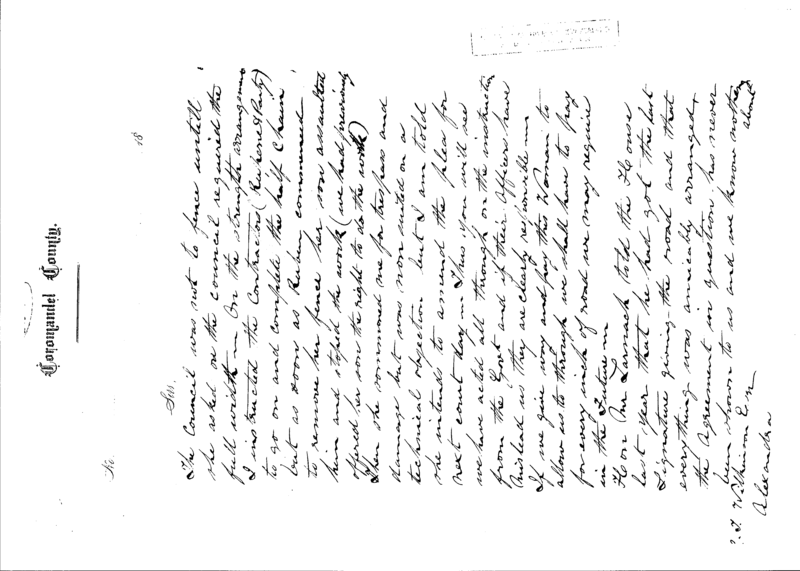 Coromandel County.
No.
18
Sir,
The Council was not to fence untill
she asked or the council required the
full width — On the strength arrangems
I instructed the Contractors (Rukene & Party)
to go on and complete the half Chain
but as soon as Ruben commenced
to remove her fence her son assaulted
him and stoped the work (we had previously
offered her son the right to do the work)
Then she summoned me for trespass and
damage but was non suited on a
technical objection but I am told
she intends to amend the plea for
next court day — Thus you will see
we have acted all through on the instructions
from the Govt and if their Officers have
mislead us they are clearly responsible —
If we give way and pay this Woman to
allow us to through we shall have to pay
for every inch of road we may require
in the Future —
Hon Mr Larnach told the House
last year that he had got the last
Signature giving the road and that
everything was amicably arranged,
the Agreement in question has never
been shown to us and we know nothing
about
? J. Wilkinson Esq
Alexandra